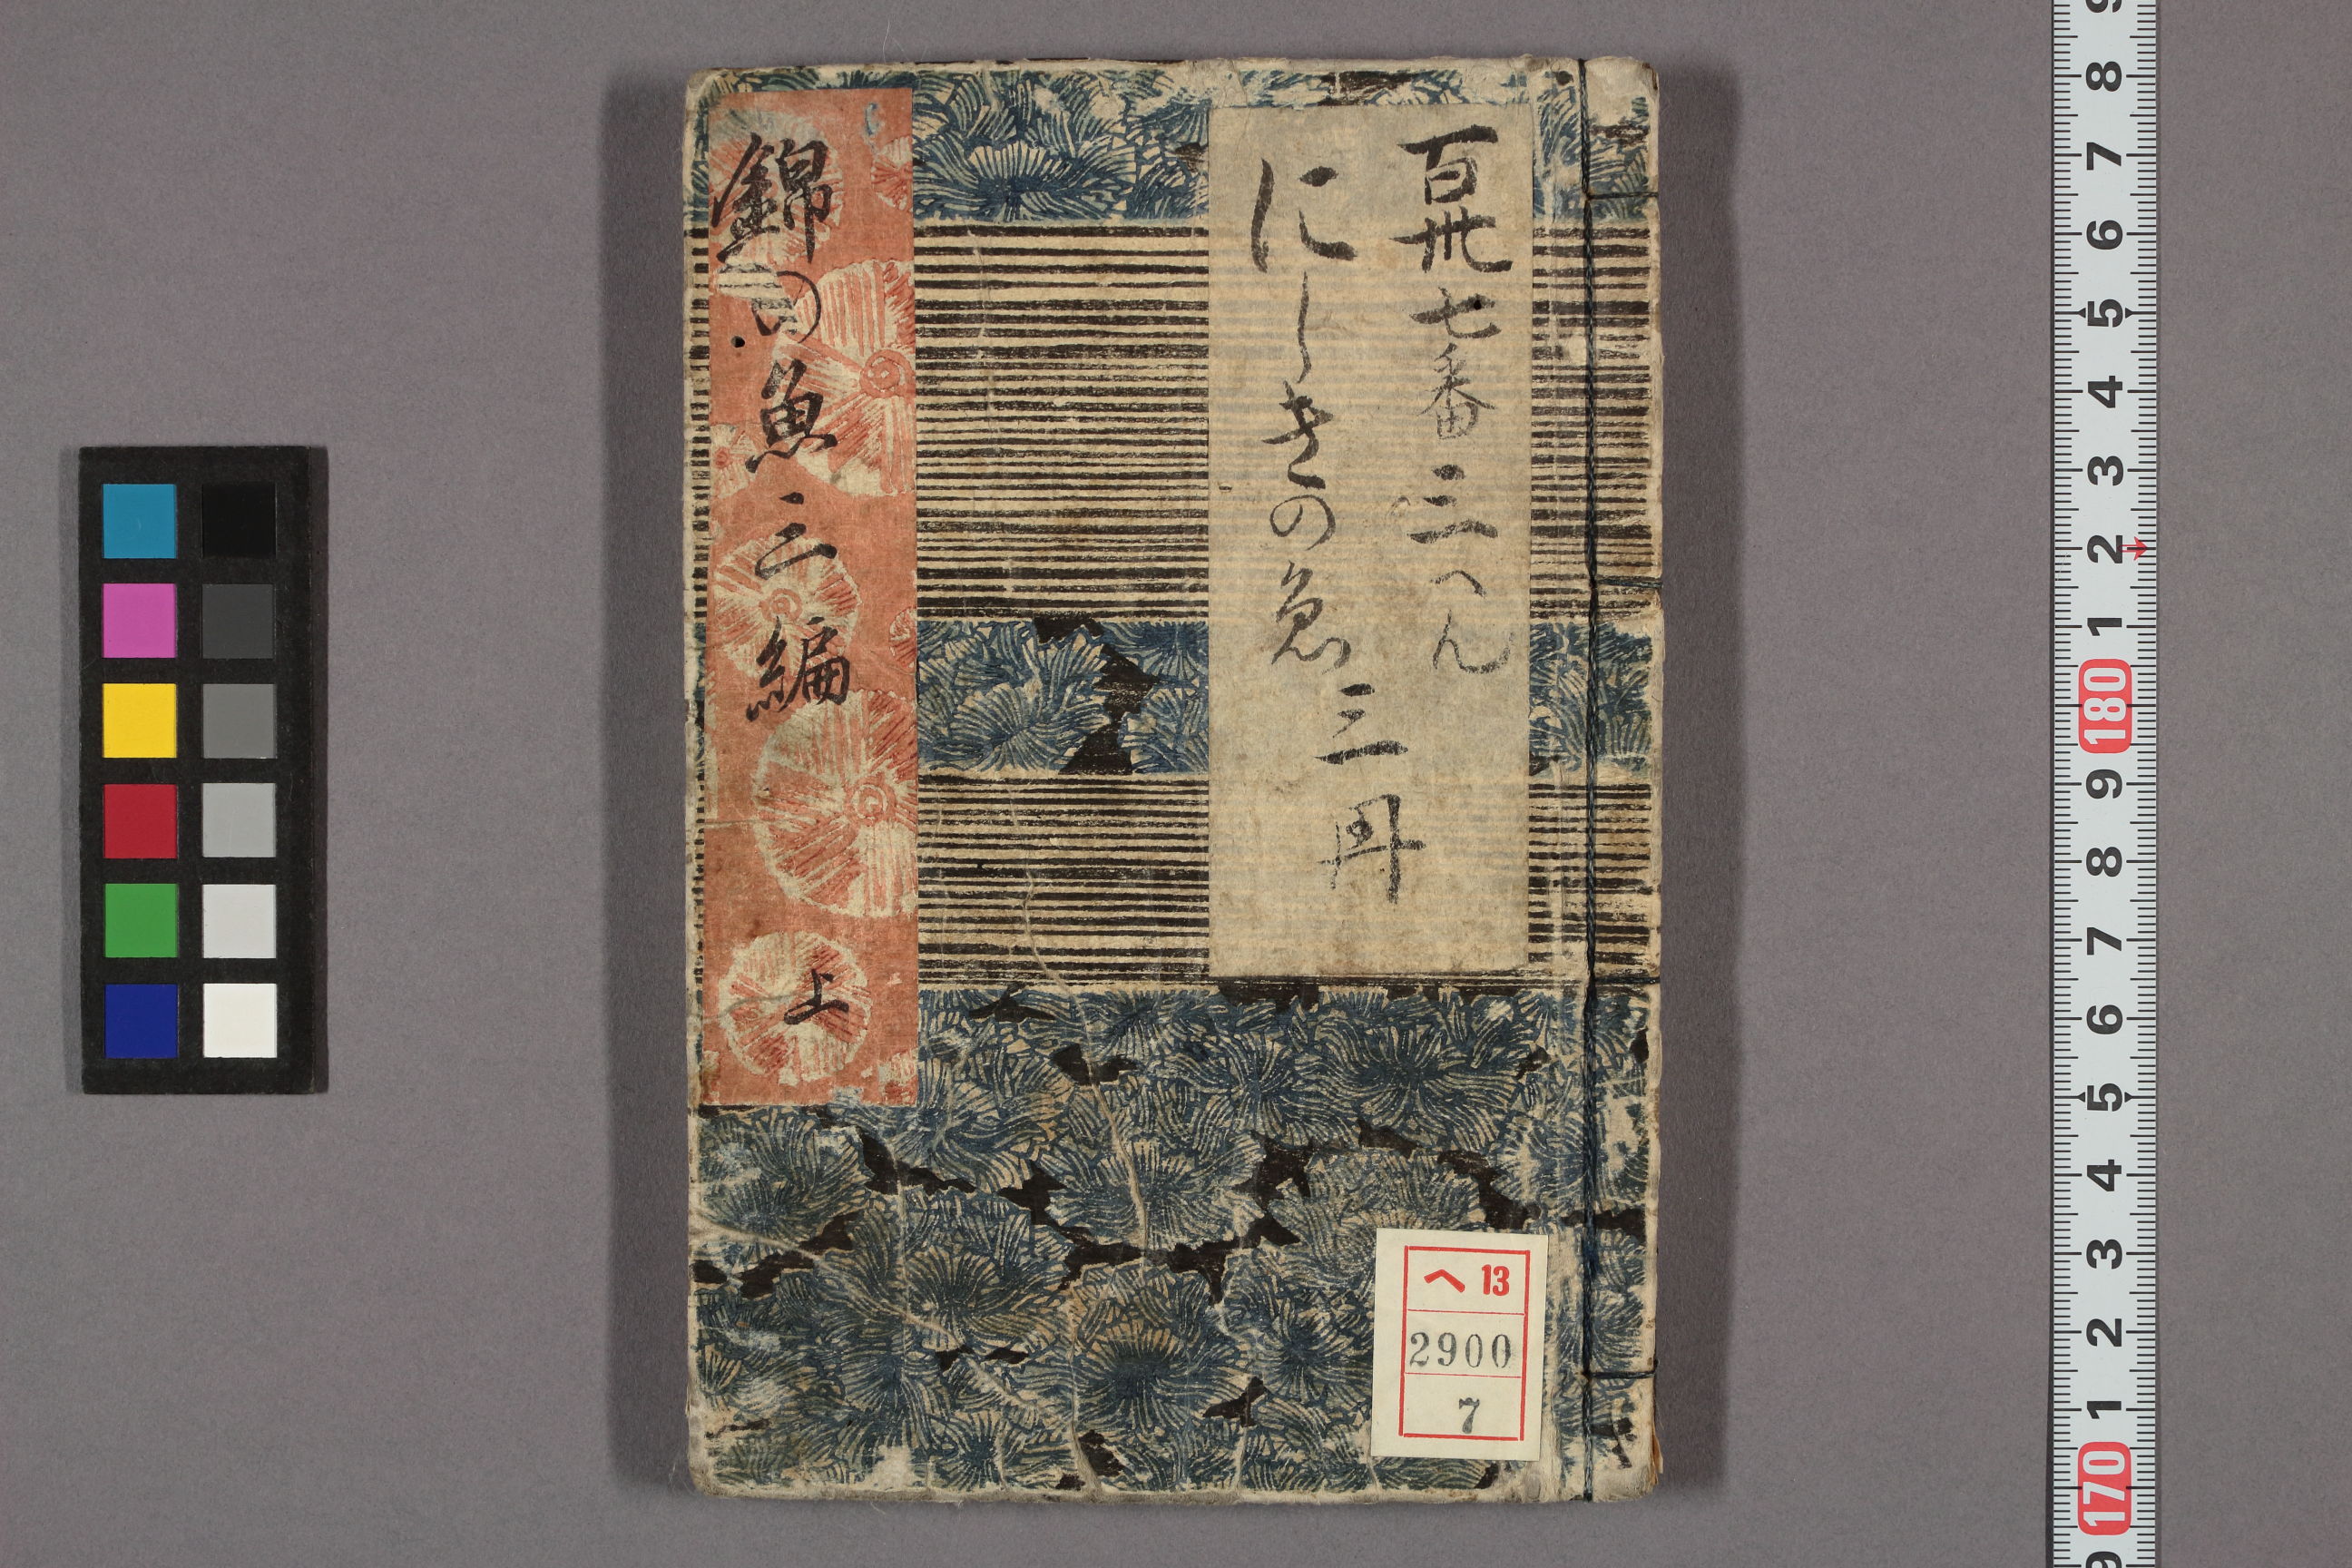 百卅七番 三へん
にしきの魚 三冊
錦の魚 三編 上
ヘ 13
2900
7
9
8
7
6
5
4
3
2
1
180
9
8
7
6
5
4
3
2
1
170
9